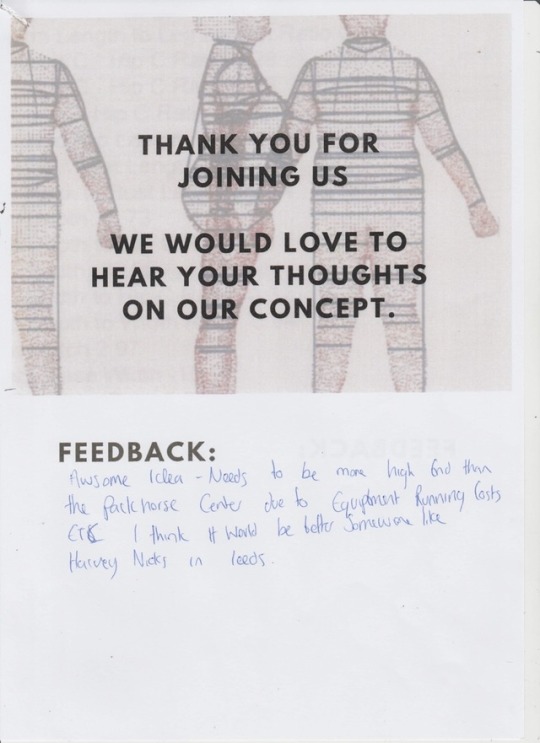 THANK YOU FOR
JOINING US
WE WOULD LOVE TO
HEAR YOUR THOUGHTS
ON OUR CONCEPT.
FEEDBACK:
Awsome Idea - Needs to be more high End than
the Packhorse Center due to Equiptment Running Costs
ETC I think it Would be better Somewhere like
Harvey Nicks in leeds.